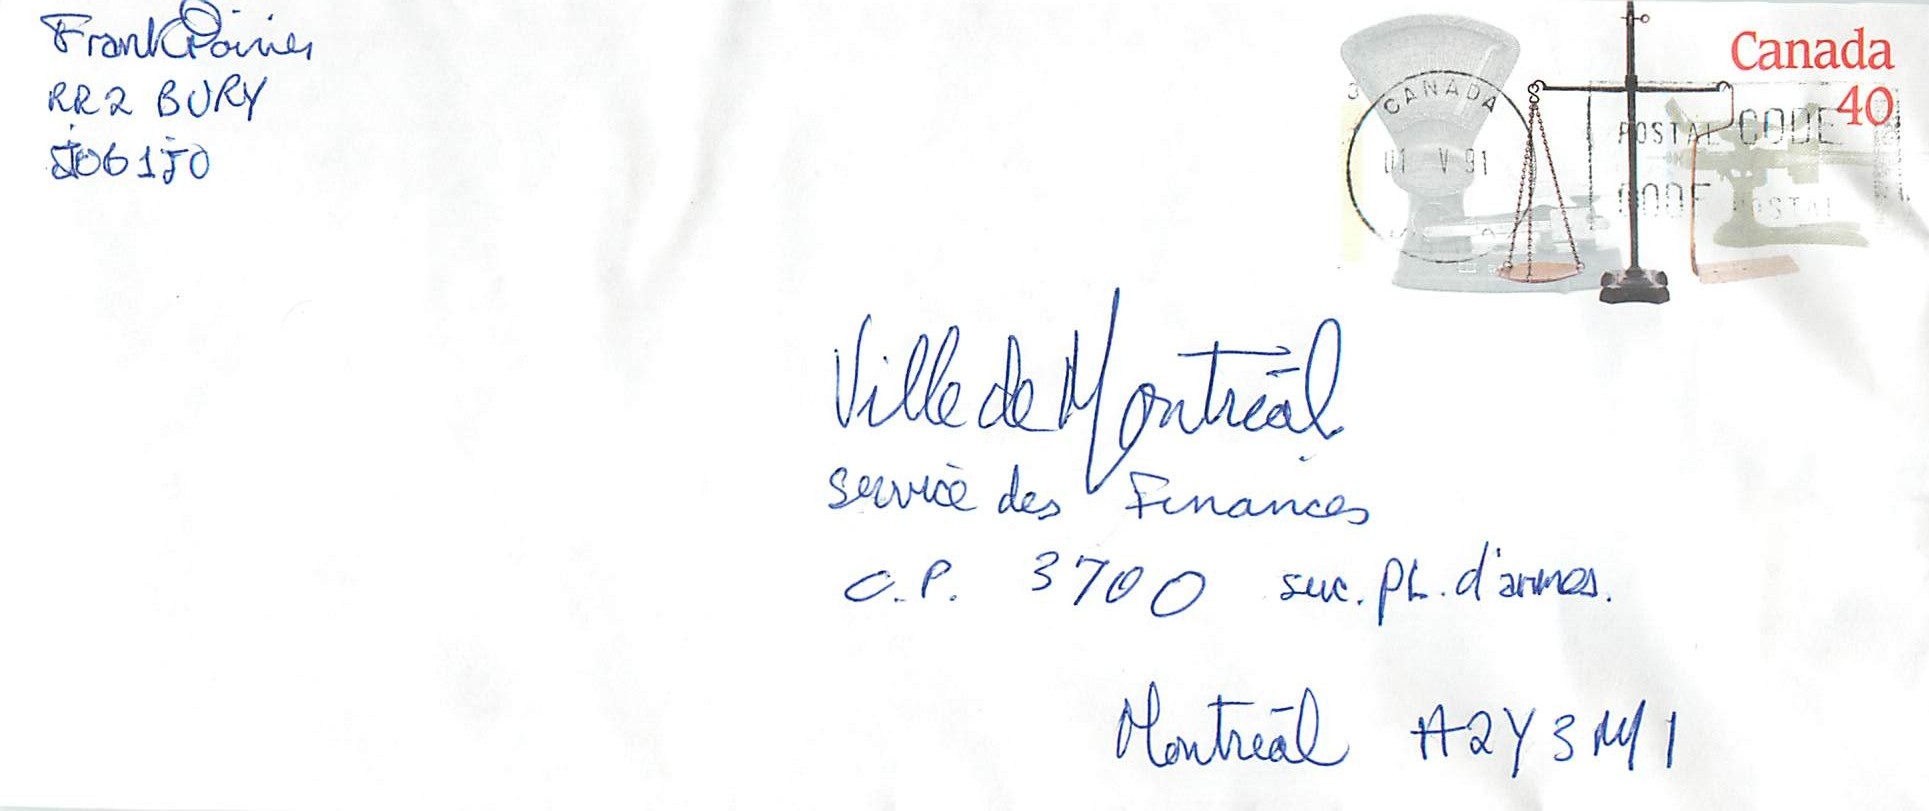 Frank Poirier
RR2 BURY
J0B1J0
Canada
40
CANADA
01 V 91
POSTAL CODE
CODE POSTAL
Ville de Montréal
Service des Finances
C.P. 3700 suc. PL. d'armes.
Montréal H2Y 3M1